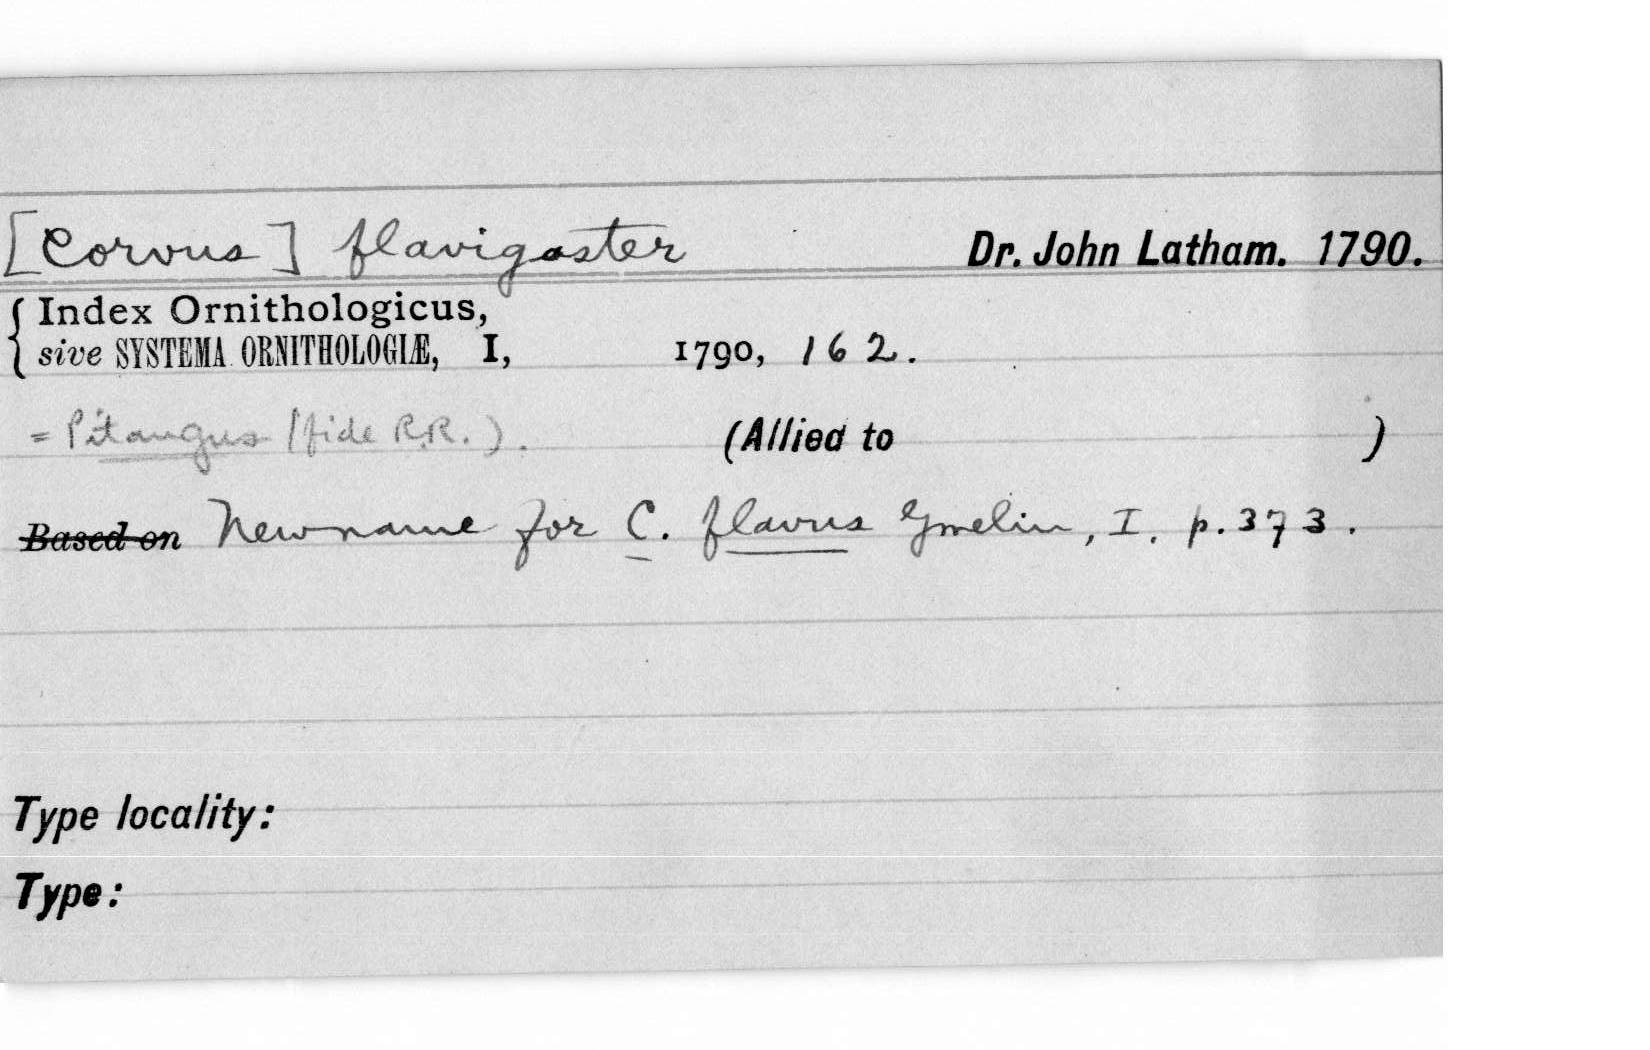 [Corvus] flavigaster Dr. John Latham. 1790.
{ Index Ornithologicus,
sive SYSTEMA ORNITHOLOGIÆ, I, 1790, 162.
= Pitangus (fide R.R.). (Allied to )
Based on New name for C. flavus Gmelin, I. p. 373.
Type locality:
Type: